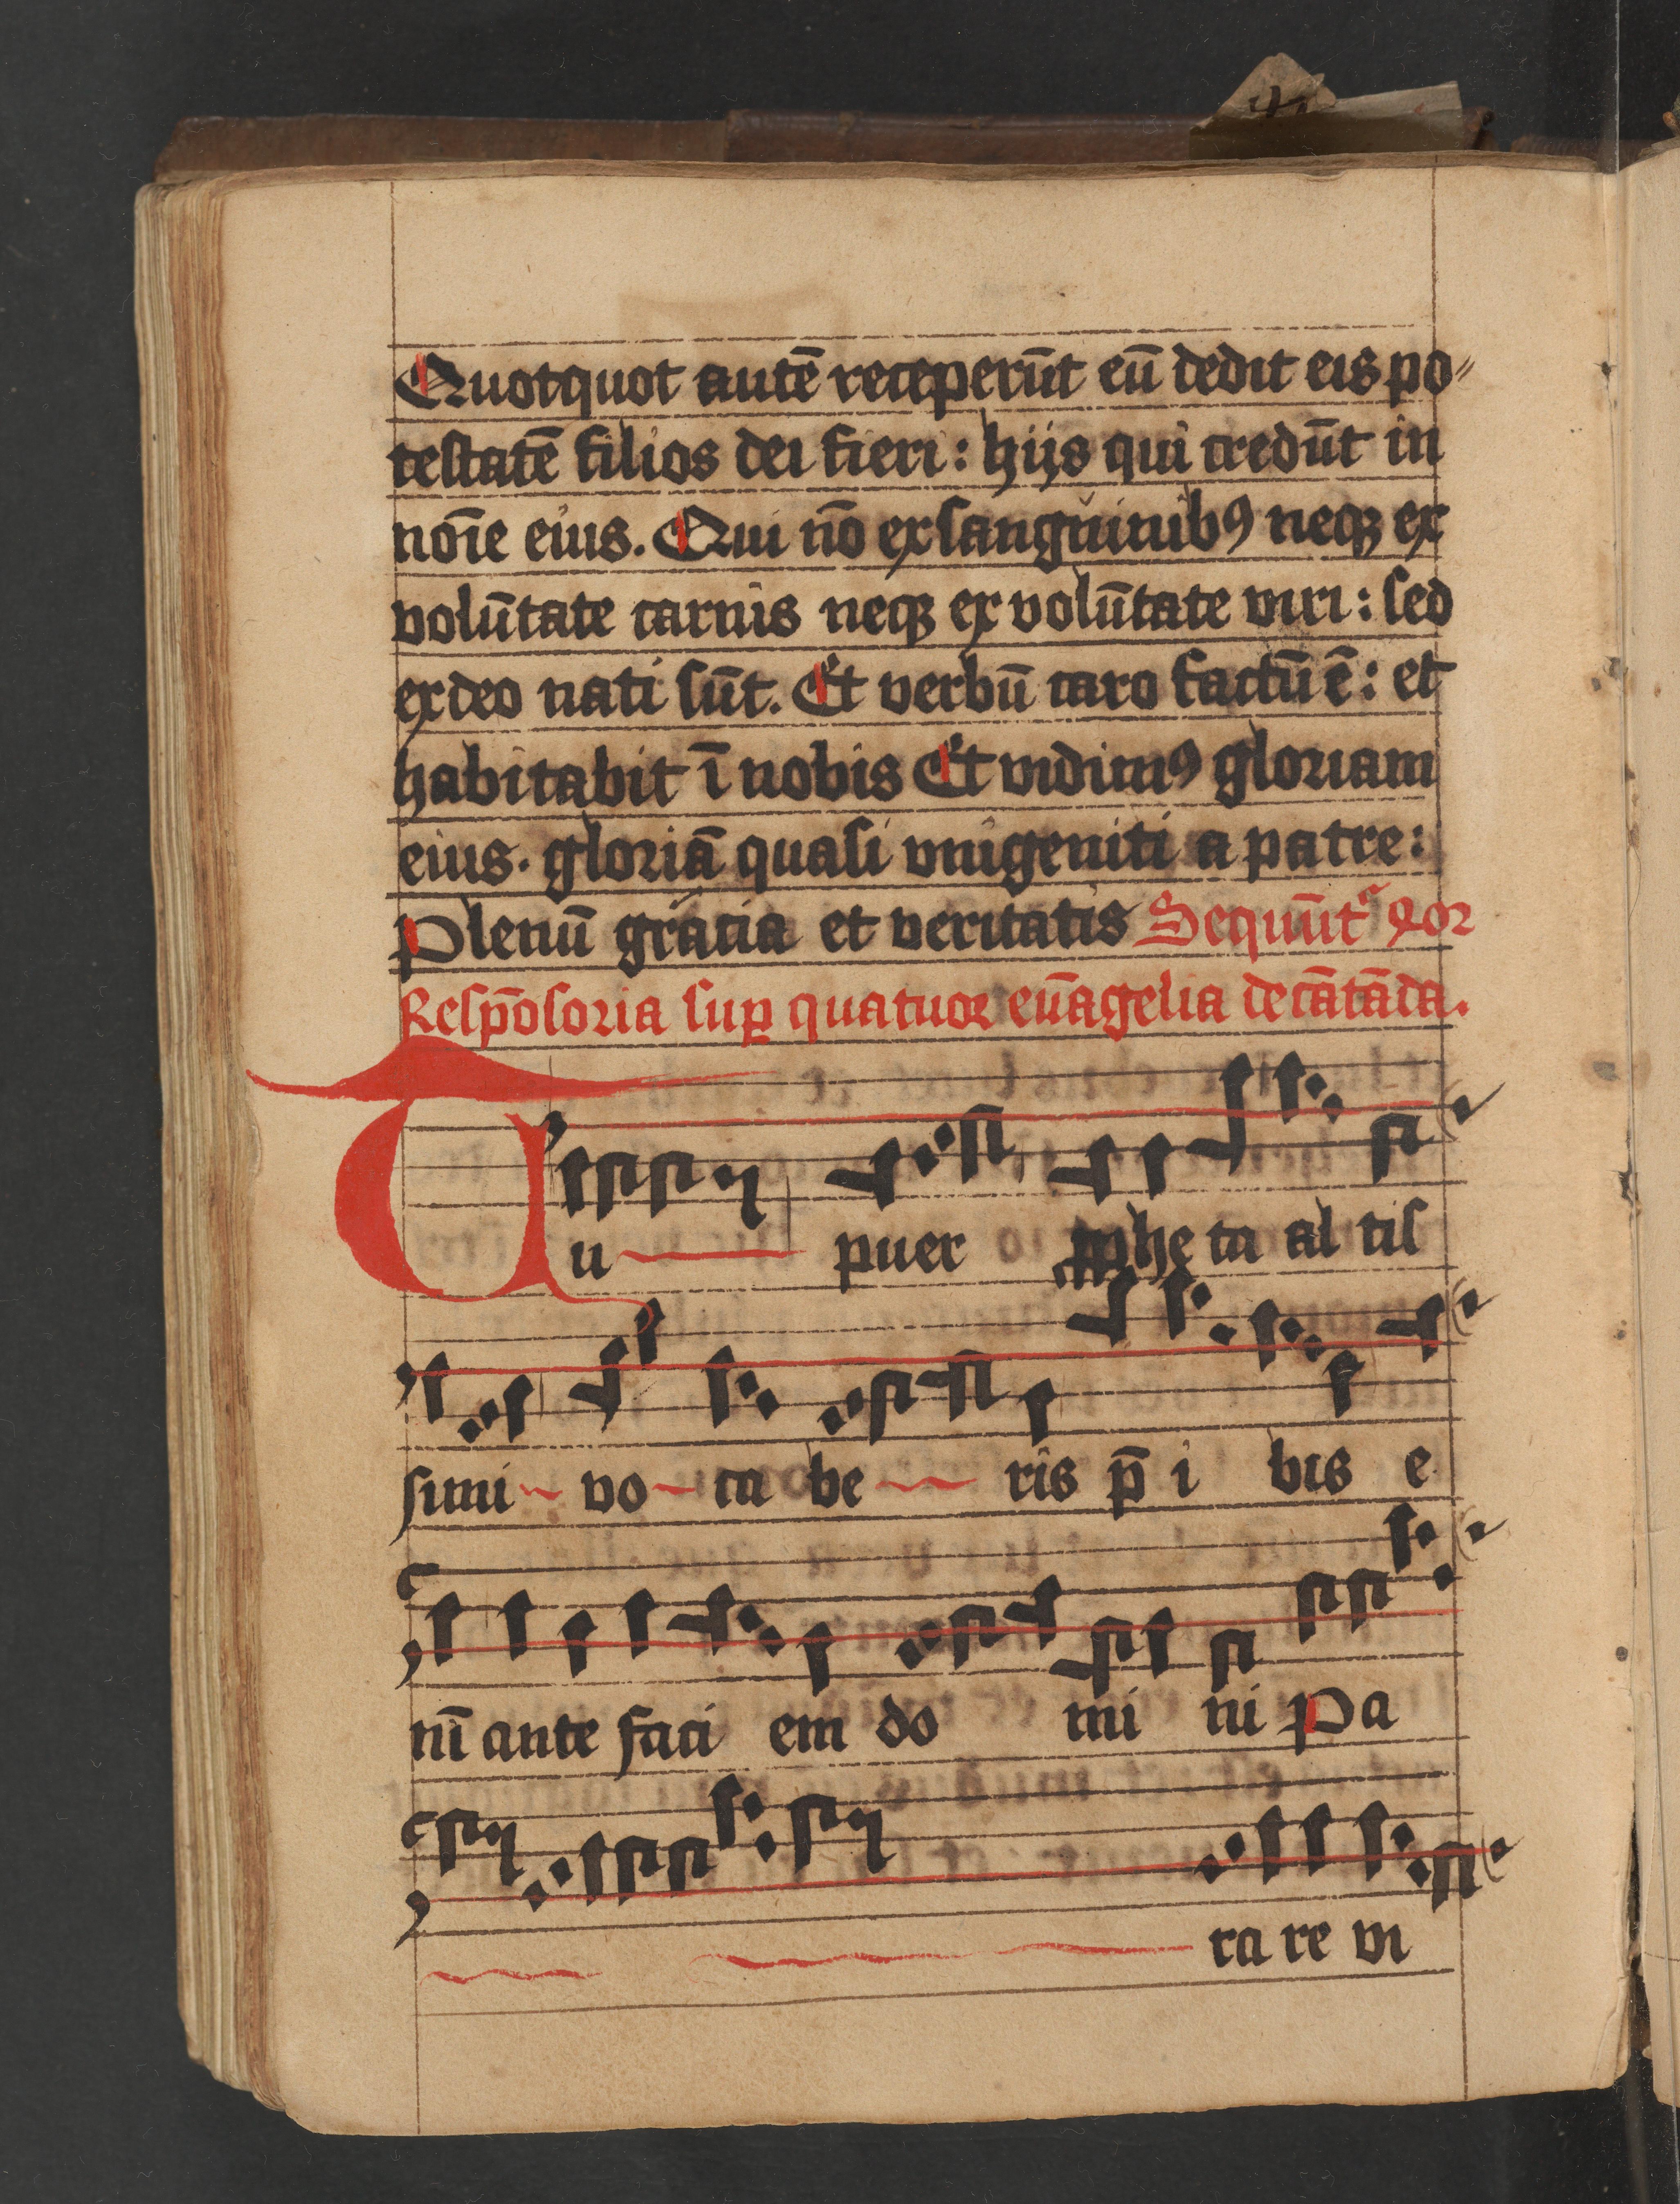 Quotquot autē receperūt eū dedit eis po⸗
testatē filios dei fieri : hijs qui credūt in
nōīe eius. Qui nō ex sanguinibꝰ neqꝫ ex
volūtate carnis neqꝫ ex volūtate viri : sed
ex deo nati sūt. Et verbū caro factū ē : et
habitabit ī nobis Et vidimꝰ gloriam
eius. gloriā quasi vnigeniti a patre :
Plenū gracia et veritatis Sequūt᷑ qͦꝛ
Respōsoria suꝑ quatuor euāgelia decātāda.
Tu puer ꝓphe ta al tis
simi vo ca be ris p̄ i bis e
nī ante faci em do mi ni Pa
ra re vi